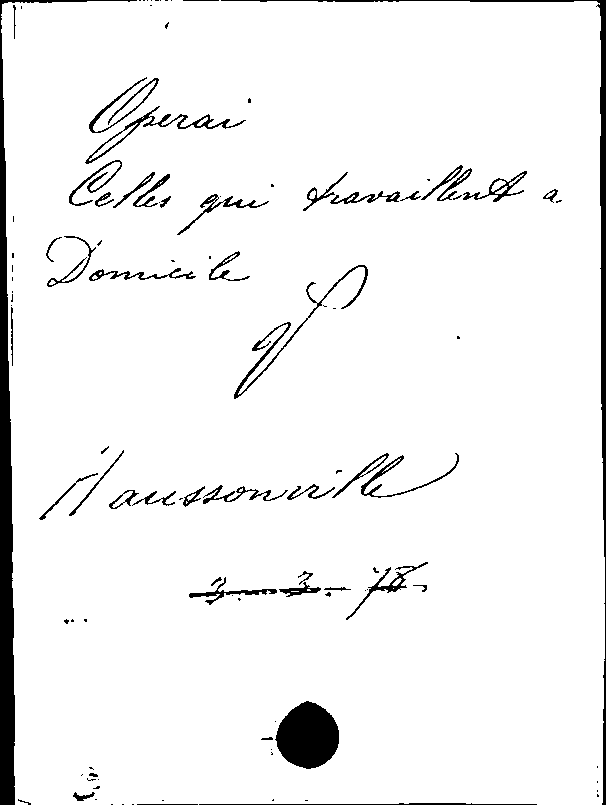 Operai
Celles qui travaillent a
Domicile
Haussonville
3 - 3 - 78